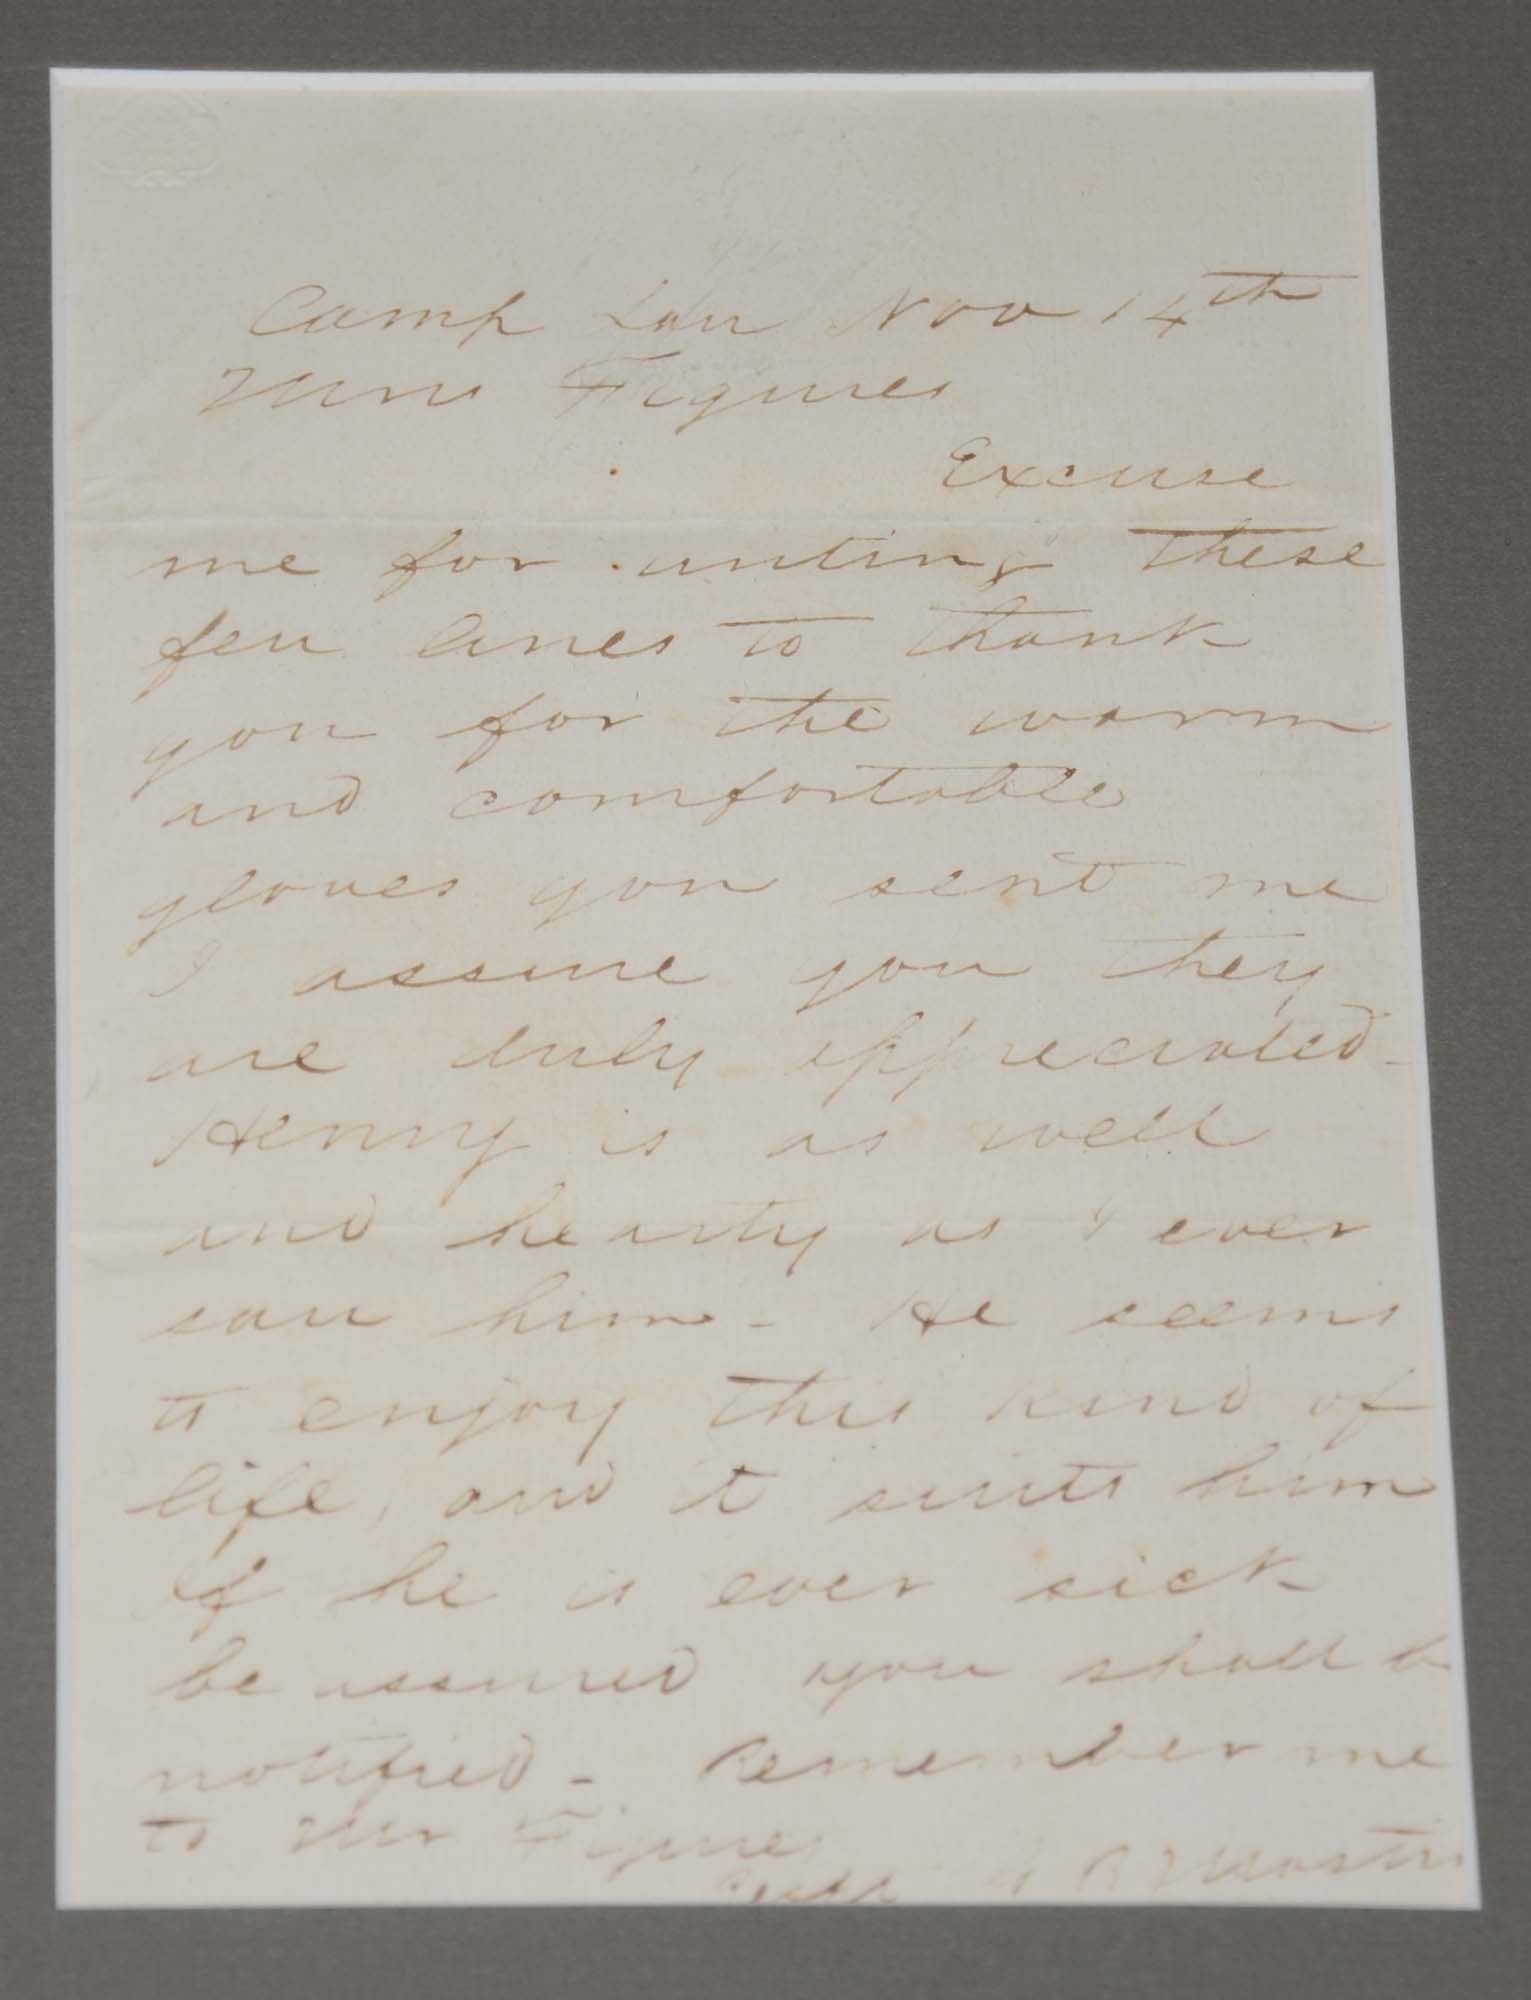 Camp Law Nov 14th
Mrs Figures
Excuse
me for writing these
few lines to thank
you for the warm
and comfortable
gloves you sent me
I assure you they
are duly appreciated -
Henry is as well
and hearty as I ever
saw him - He seems
to enjoy this kind of
life, and it suits him
If he is ever sick
be assured you shall be
notified - Remember me
to Mr Figures
G B Martin